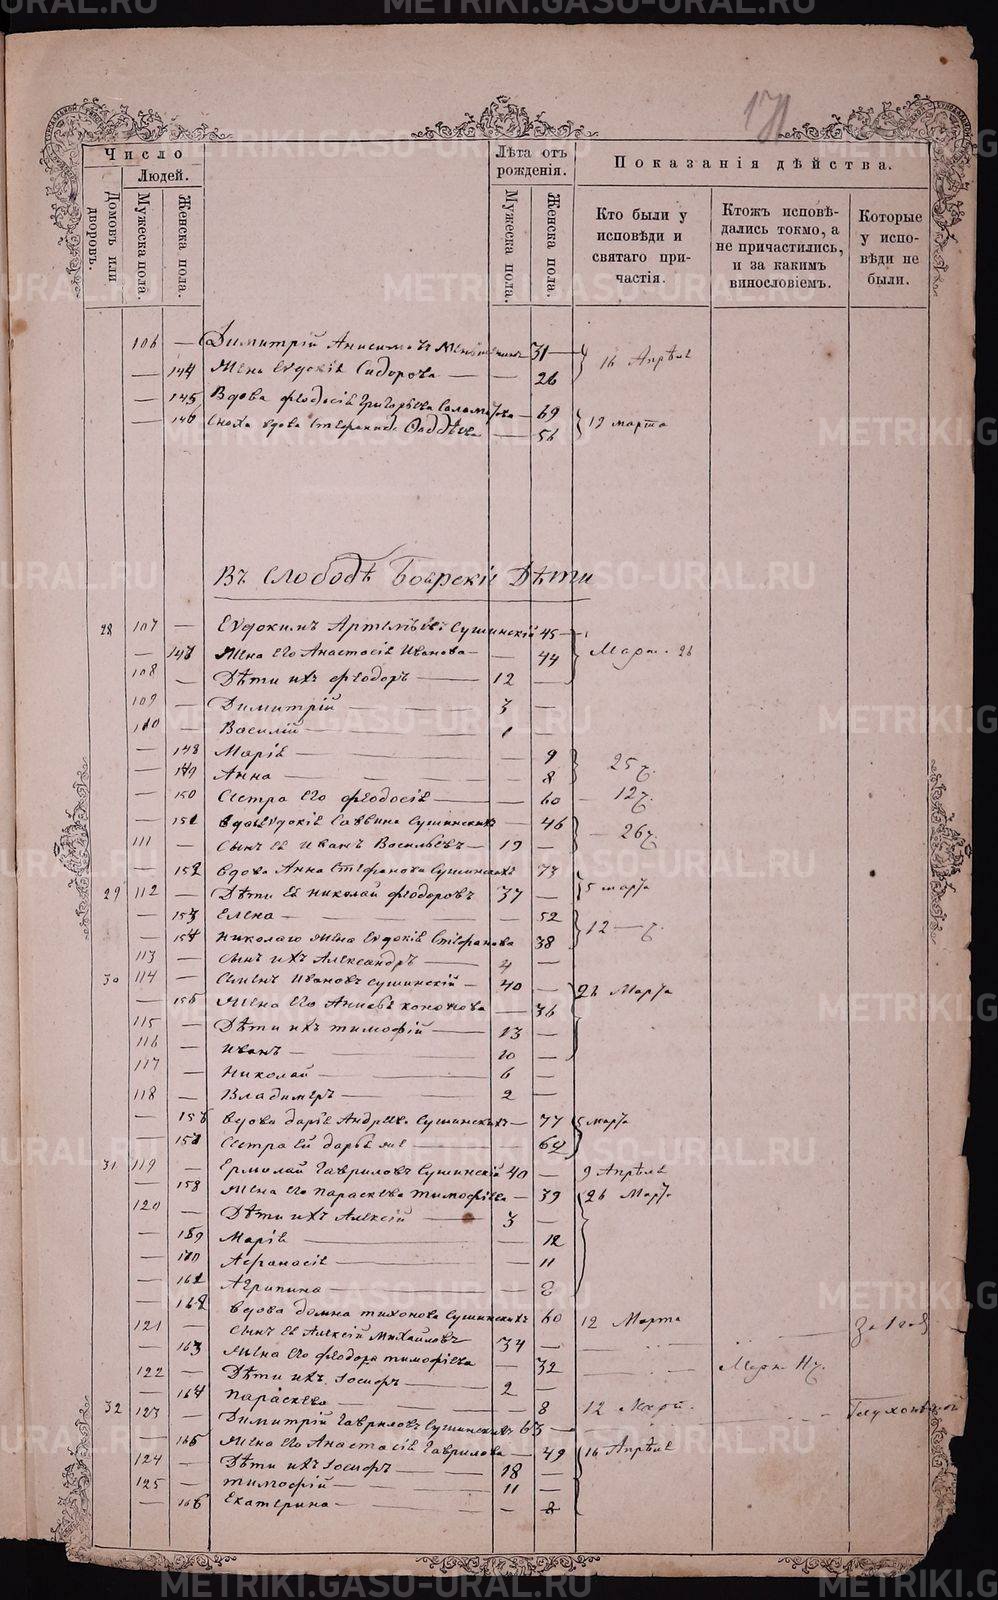 METRIKI.GASO-URAL.RU
171
Число
Людей.
Домовъ или дворовъ.
Мужеска пола.
Женска пола.
Лѣта отъ рожденія.
Мужеска пола.
Женска пола.
Показанія дѣйства.
Кто были у исповѣди и святаго причастія.
Ктожъ исповѣдались токмо, а не причастились, и за какимъ винословіемъ.
Которые у исповѣди не были.
106 — Димитрій Анисимовъ 31 —
— 144 Жена Евдокія Сидорова — — 26 16 Апрѣля
— 145 Вдова Феодосія Григорьева — 69
— 146 Сноха вдова Стефанида — 56 12 марта
Въ слободѣ Боярскіи Дѣти
28 107 — Евдокимъ Артемьевъ Сушинскій 45 —
— 147 Жена его Анастасія Иванова — — 44 Март. 26
108 — Дѣти ихъ Феодоръ — 12 —
109 — Димитрій — 3 —
110 — Василій — 1 —
— 148 Марія — — 9
— 149 Анна — — 8 25 ч.
— 150 Сестра его Феодосія — — 60 — 12 ч.
— 151 вдова Евдокія Саввина Сушинскихъ — 46
111 — Сынъ ея Иванъ Васильевъ — 19 — 26 ч.
— 152 вдова Анна Стефанова Сушинскихъ 73
29 112 — Дѣти ея Николай Феодоровъ 37 — 5 марта
— 153 Елена — — 52
— 154 Николаю жена Евдокія Стефанова 38 12 — ч.
113 — Сынъ ихъ Александръ — 4 —
30 114 — Семенъ Ивановъ Сушинскій — 40 — 26 Марта
— 155 Жена его — 36
115 — Дѣти ихъ Тимофій — 13 —
116 — Иванъ — 10 —
117 — Николай — 6 —
118 — Владимеръ — 2 —
— 156 вдова Дарія Андреева Сушинскихъ — 77 5 марта
— 157 Сестра ей Дарья же — 62
31 119 — Ермолай Гавриловъ Сушинскій 40 — 9 Апрѣля
— 158 Жена его Параскева Тимофіева — 39 26 Марта
120 — Дѣти ихъ Алексій — 3 —
— 159 Марія — 12
— 160 Афанасія — 11
— 161 Агрипина — 8
— 162 вдова Домна Тихонова Сушинскихъ 60 12 Марта
121 — Сынъ ея Алексій Михайловъ 34 —
— 163 Жена его Феодора Тимофіева — 32
122 — Дѣти ихъ Іосифъ — 2 —
— 164 Параскева — 8 12
32 123 — Димитрій Гавриловъ Сушинскихъ 63 —
— 165 Жена его Анастасія Гаврилова — 49 16 Апрѣля
124 — Дѣти ихъ Іосифъ — 18 —
125 — Тимофій — 11 —
— 166 Екатерина — — 8